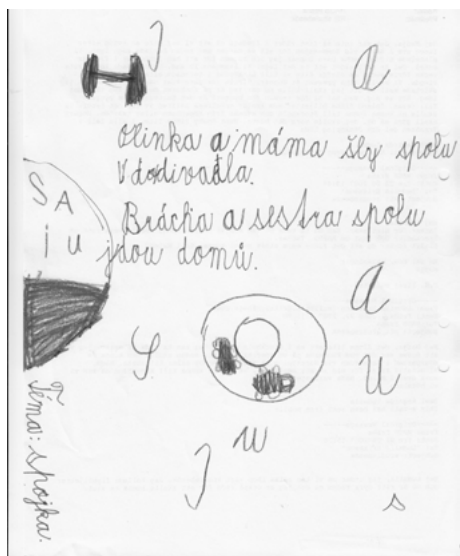 Olinka a máma šly spolu
V dodivadla.
S A
i u
Brácha a sestra spolu
jdou domů.
U
s
Téma: spojka.